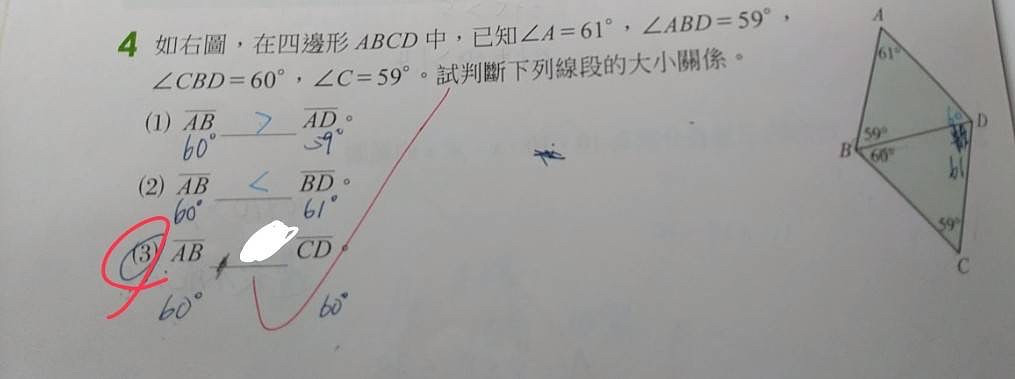 4 如右圖，在四邊形 ABCD 中，已知∠A=61°，∠ABD=59°，
∠CBD=60°，∠C=59°。試判斷下列線段的大小關係。
(1) AB > AD。
60° 59°
(2) AB < BD。
60° 61°
(3) AB CD。
60° 60°
A
61°
D
59°
B 60°
61
59°
C